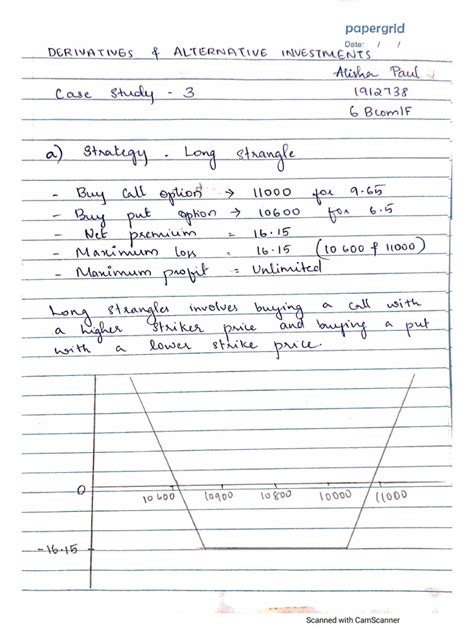 papergrid
Date: / /
DERIVATIVES & ALTERNATIVE INVESTMENTS
Alisha Paul
Case Study - 3
1912738
6 BcomIF
a) Strategy - Long Strangle
- Buy Call option → 11000 for 9.65
- Buy put option → 10600 for 6.5
- Net premium = 16.15
- Maximum loss = 16.15 (10600 & 11000)
- Maximum profit = Unlimited
Long strangles involves buying a call with
a higher striker price and buying a put
with a lower strike price.
0
10600 10900 10800 10000 11000
-16.15
Scanned with CamScanner